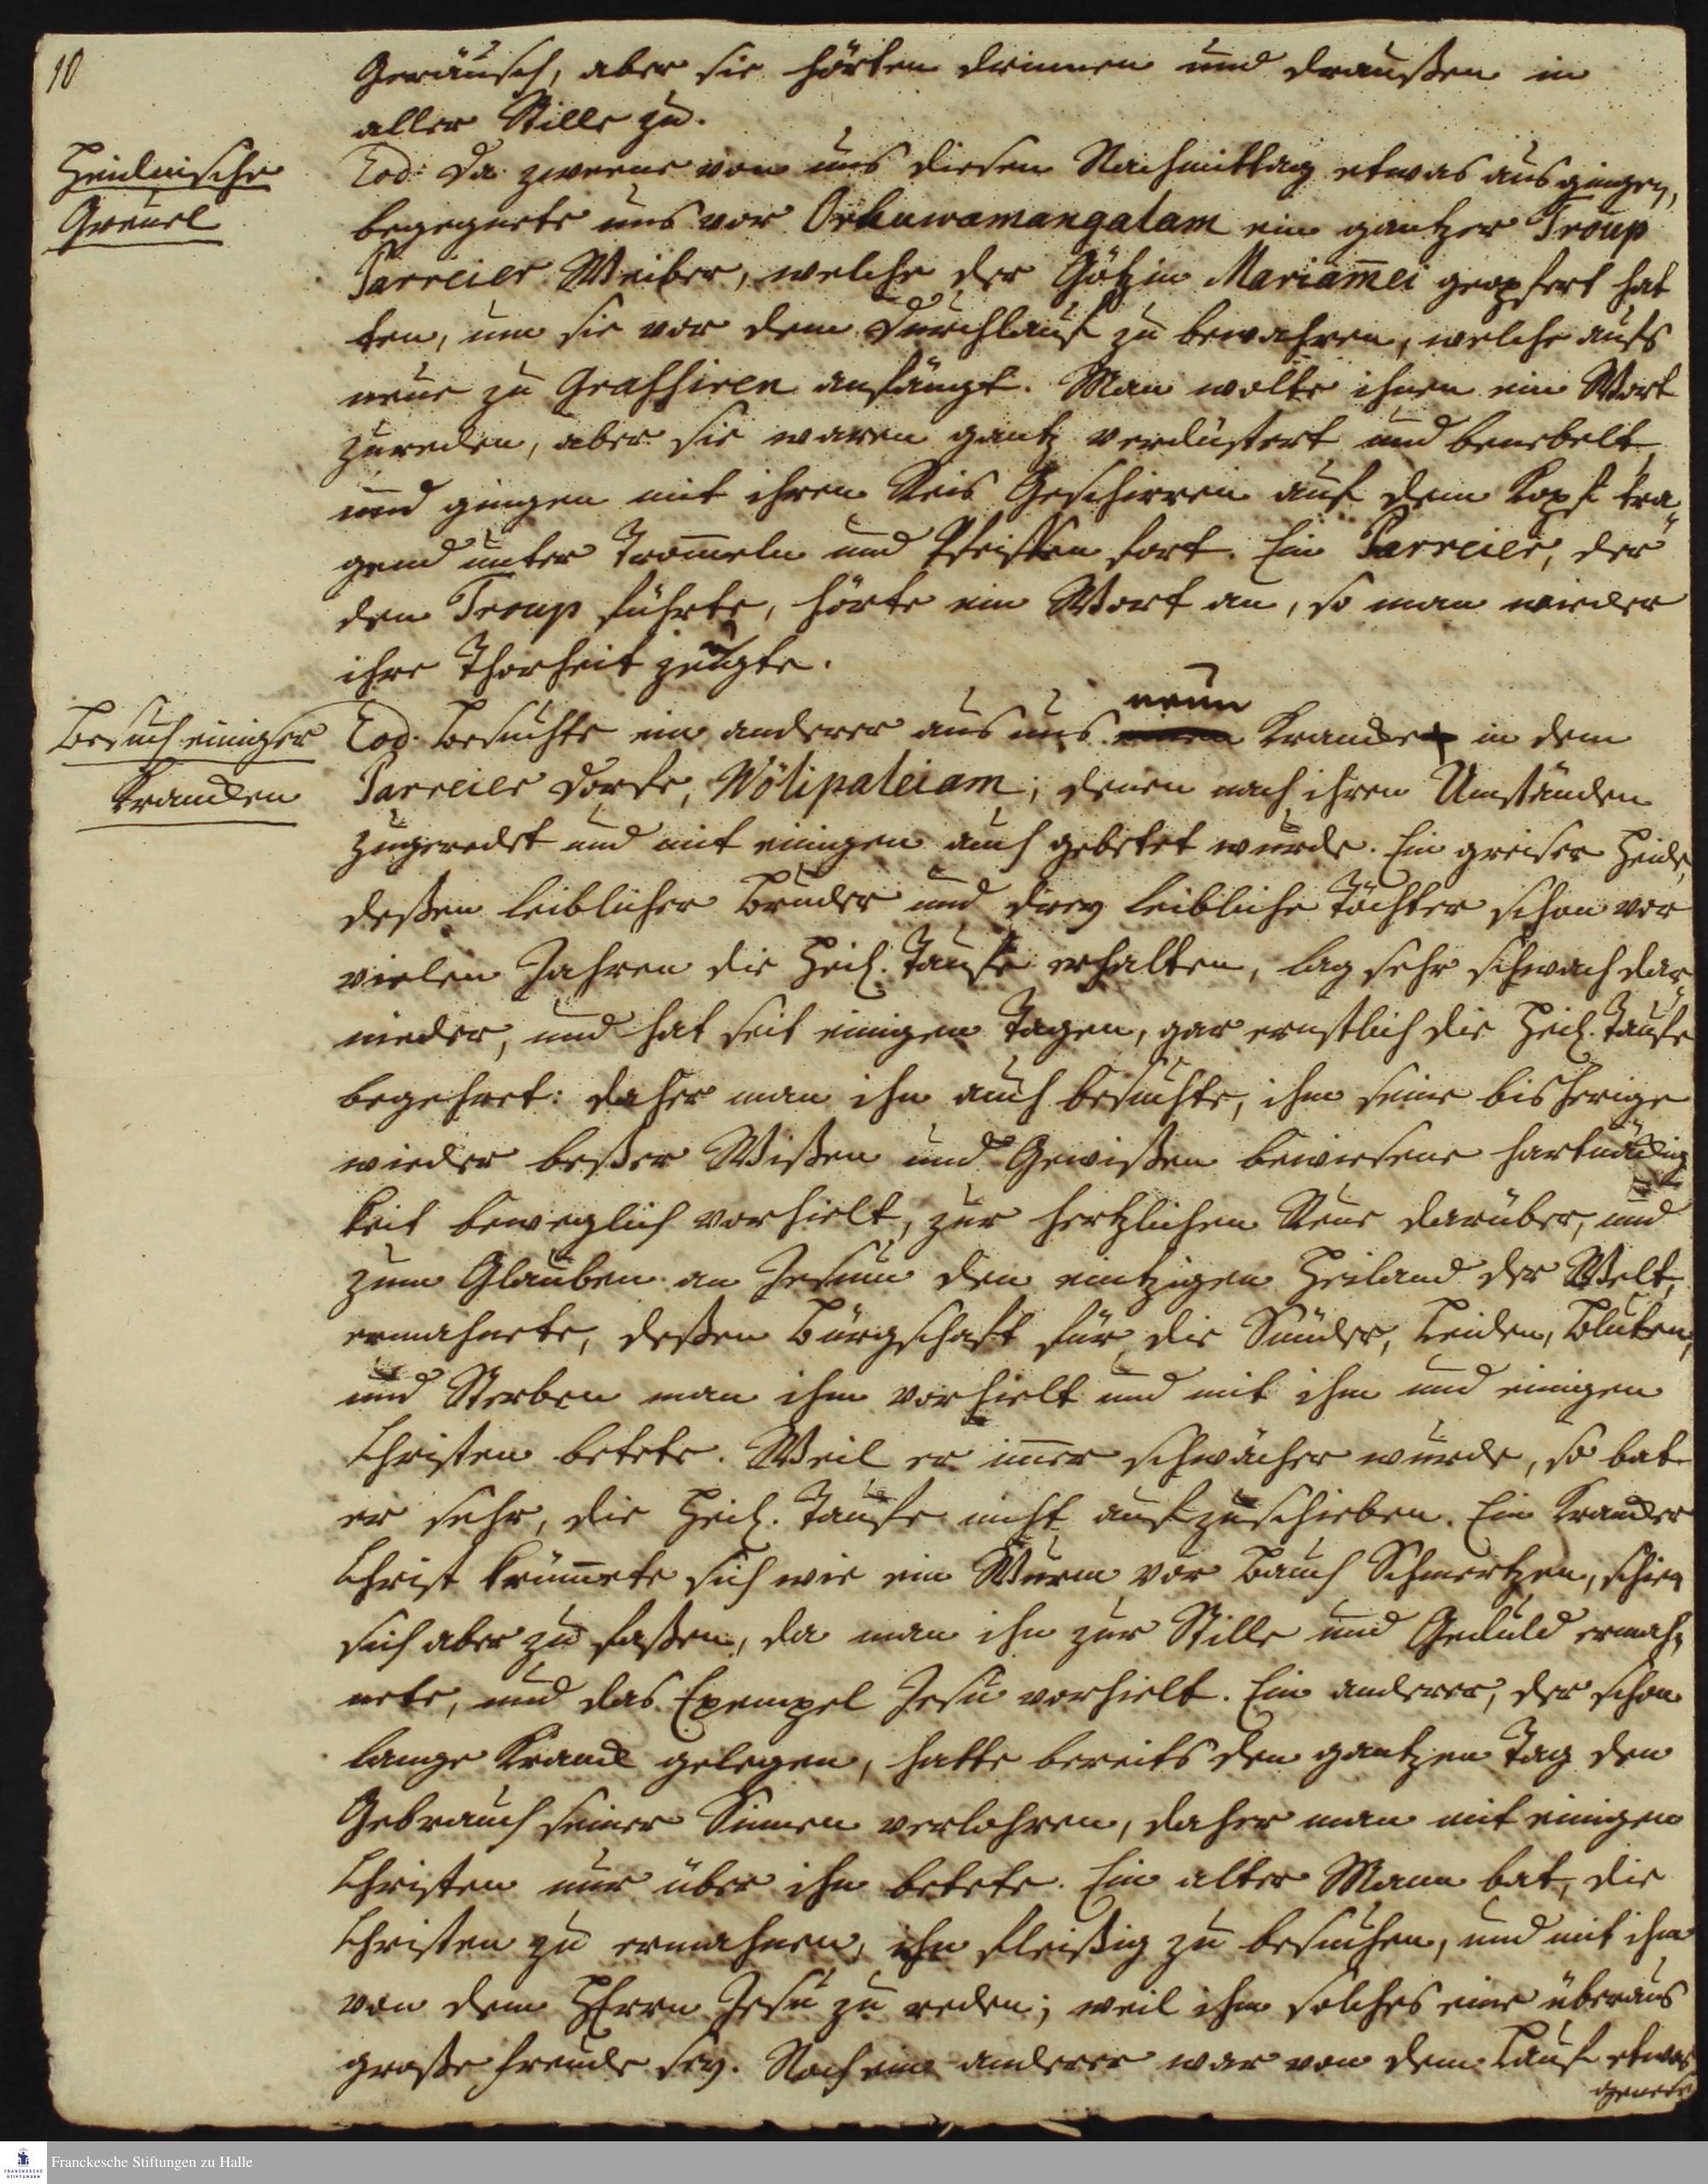 10
Geräusch, aber sie hörten drinnen und draußen in
aller Stille zu.
Heidnische
Greuel
Eod: Da zweene von uns diesen Nachmittag etwas ausgingen,
begegnete uns vor Orhuwamangalam ein gantzer Troup
Parreier Weiber, welche der Götzin Mariam̄ei geopfert hat
ten, um sie vor dem Durchlauf zu bewahren, welche aufs
neue zu Grassiren anfängt. Man wolte ihnen ein Wort
zureden, aber sie waren gantz verdüstert und benebelt,
und gingen mit ihren Reis Geschirren auf dem Kopf tra
gend unter Trom̄eln und Pfeiffen fort. Ein Parreier, der
den Troup führte, hörte ein Wort an, so man wieder
ihre Thorheit zeugte.
Besuch einiger
Krancken
Eod. Besuchte ein anderer aus uns neun Krancke in dem
Parreier Dorfe, Wölipaleiam; denen nach ihren Umständen
zugeredet und mit einigen auch gebetet wurde. Ein greiser Heide,
deßen leiblicher Bruder und drey leibliche Töchter schon vor
vielen Jahren die Heil. Taufe erhalten, lag sehr schwach dar
nieder, und hat seit einigen Tagen, gar ernstlich die Heil. Taufe
begehret: daher man ihn auch besuchte, ihm seine bisherige
wieder beßer Wißen und Gewißen bewiesene Hartnäckig
keit beweglich vorhielt, zur hertzlichen Reue darüber, und
zum Glauben an Jesum den eintzigen Heiland der Welt,
ermahnete, deßen Bürgschaft für die Sünder, Leiden, Bluten,
und Sterben man ihm vorhielt und mit ihm und einigen
Christen betete. Weil er im̄er schwächer wurde, so bat
er sehr, die Heil. Taufe nicht aufzuschieben. Ein Krancker
Christ krüm̄ete sich wie ein Wurm vor Bauch Schmertzen, schien
sich aber zu faßen, da man ihn zur Stille und Geduld ermah,
nete, und das Exempel Jesu vorhielt. Ein anderer, der schon
lange Kranck gelegen, hatte bereits den gantzen Tag den
Gebrauch seiner Sinnen verlohren, daher man mit einigen
Christen nur über ihn betete. Ein alter Mann bat, die
Christen zu ermahnen, ihn fleißig zu besuchen, und mit ihm
von dem HErrn Jesu zu reden; weil ihm solches eine überaus
große Freude sey. Noch ein anderer war von dem Lauf etwas
genesen
Franckesche Stiftungen zu Halle
FRANCKESCHE
STIFTUNGEN